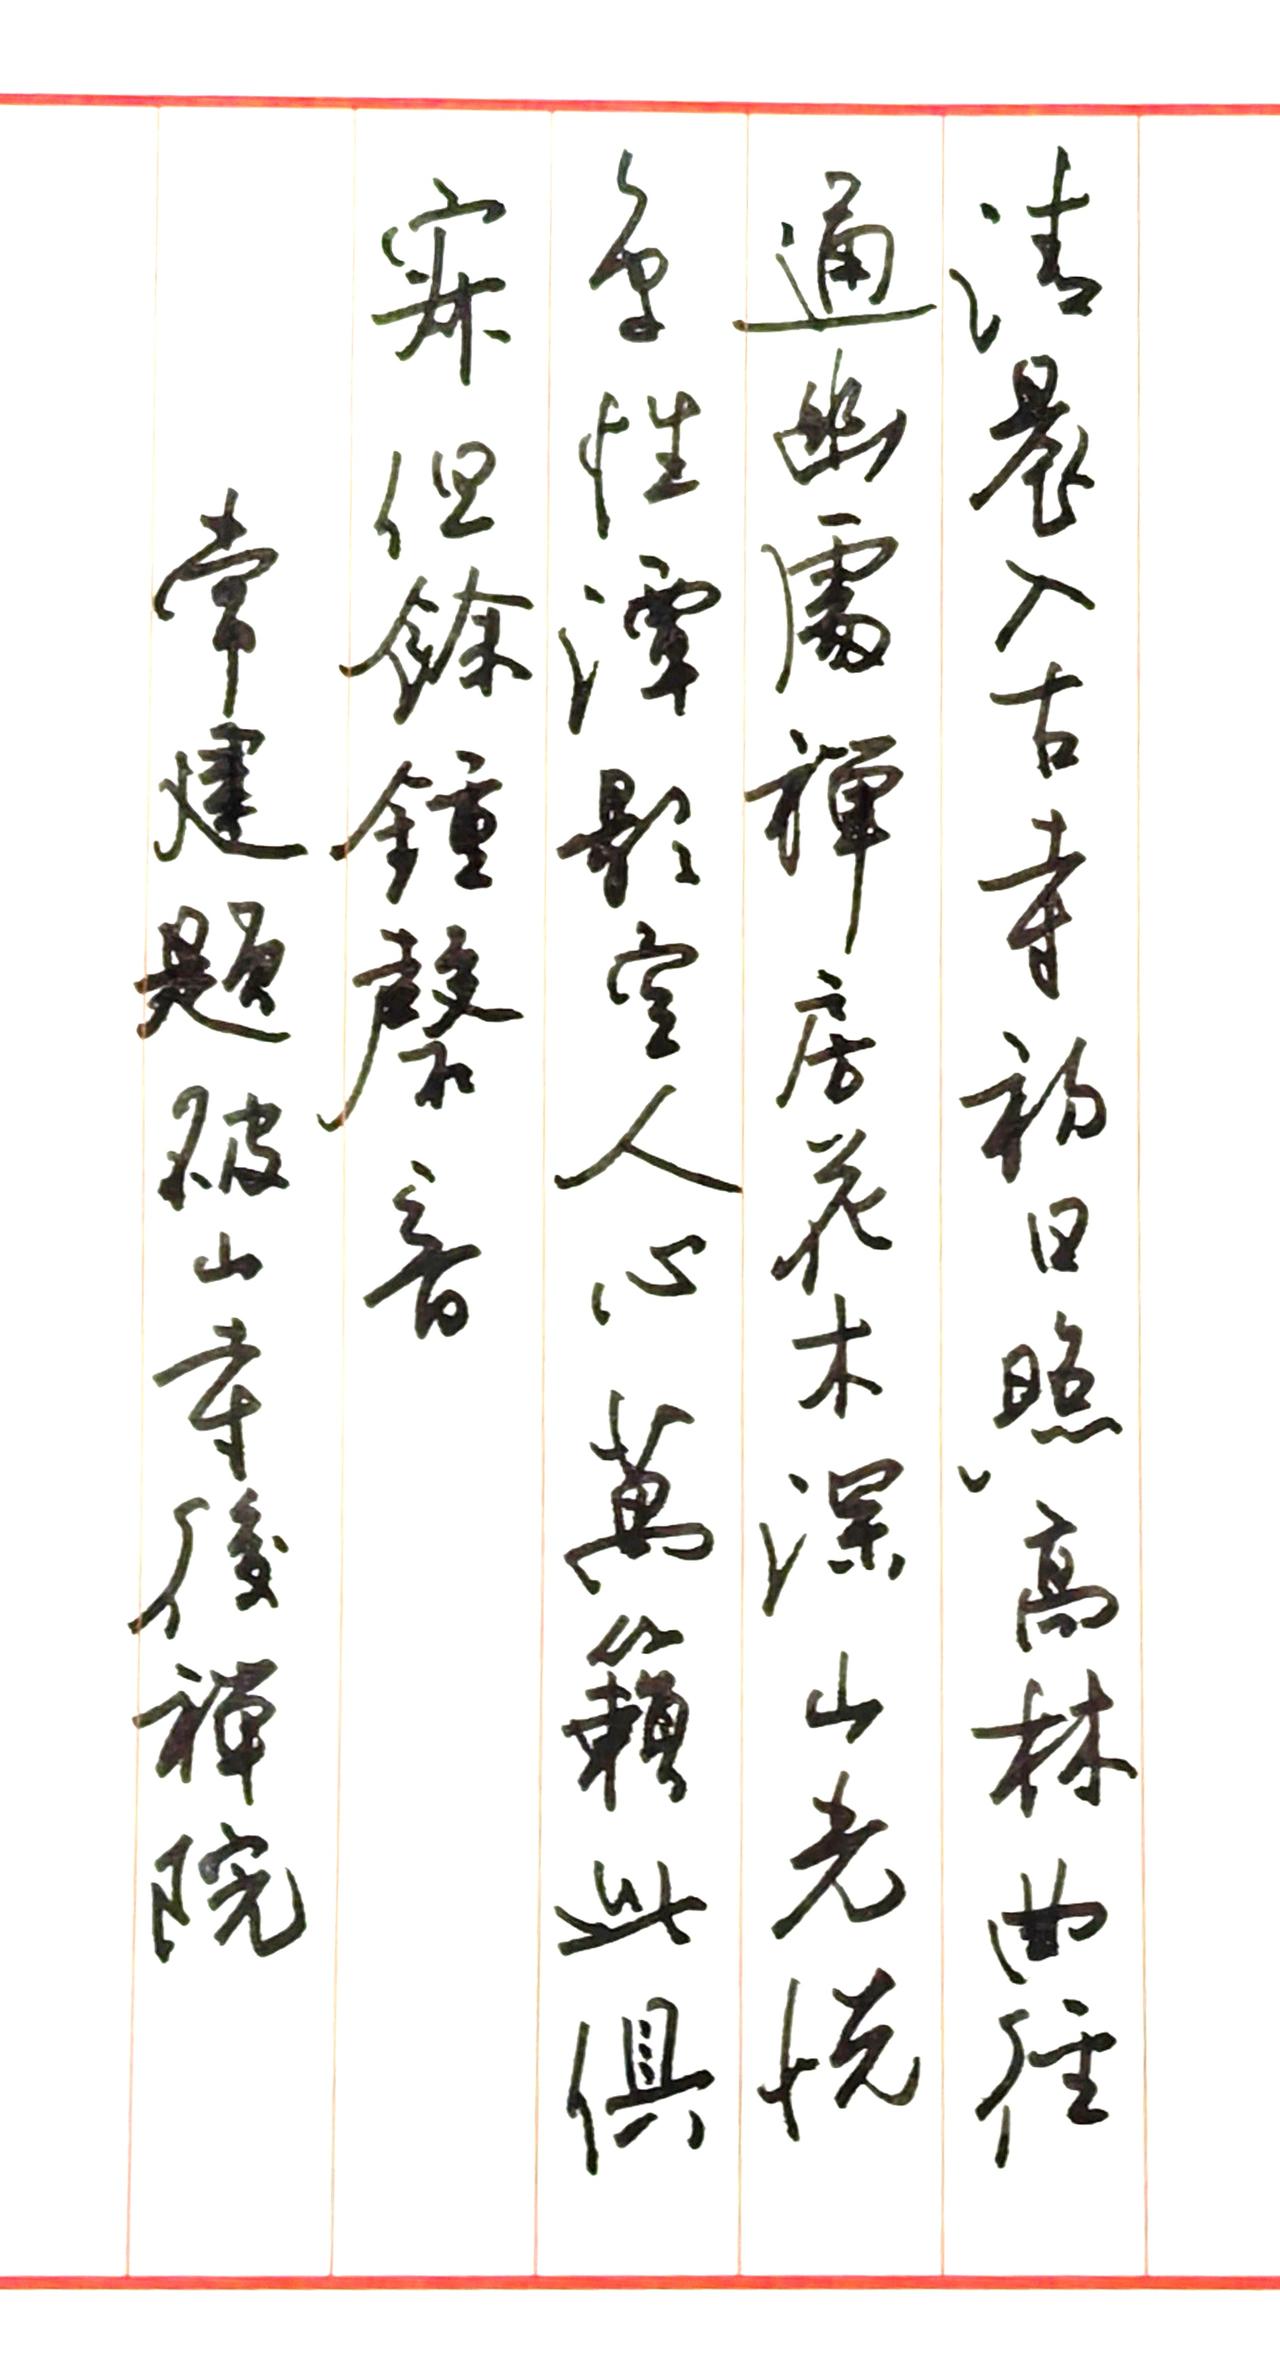 清晨入古寺初日照高林曲徑
通幽處禪房花木深山光悅
鳥性潭影空人心萬籟此俱
寂但餘鍾磬音
常建題破山寺後禪院